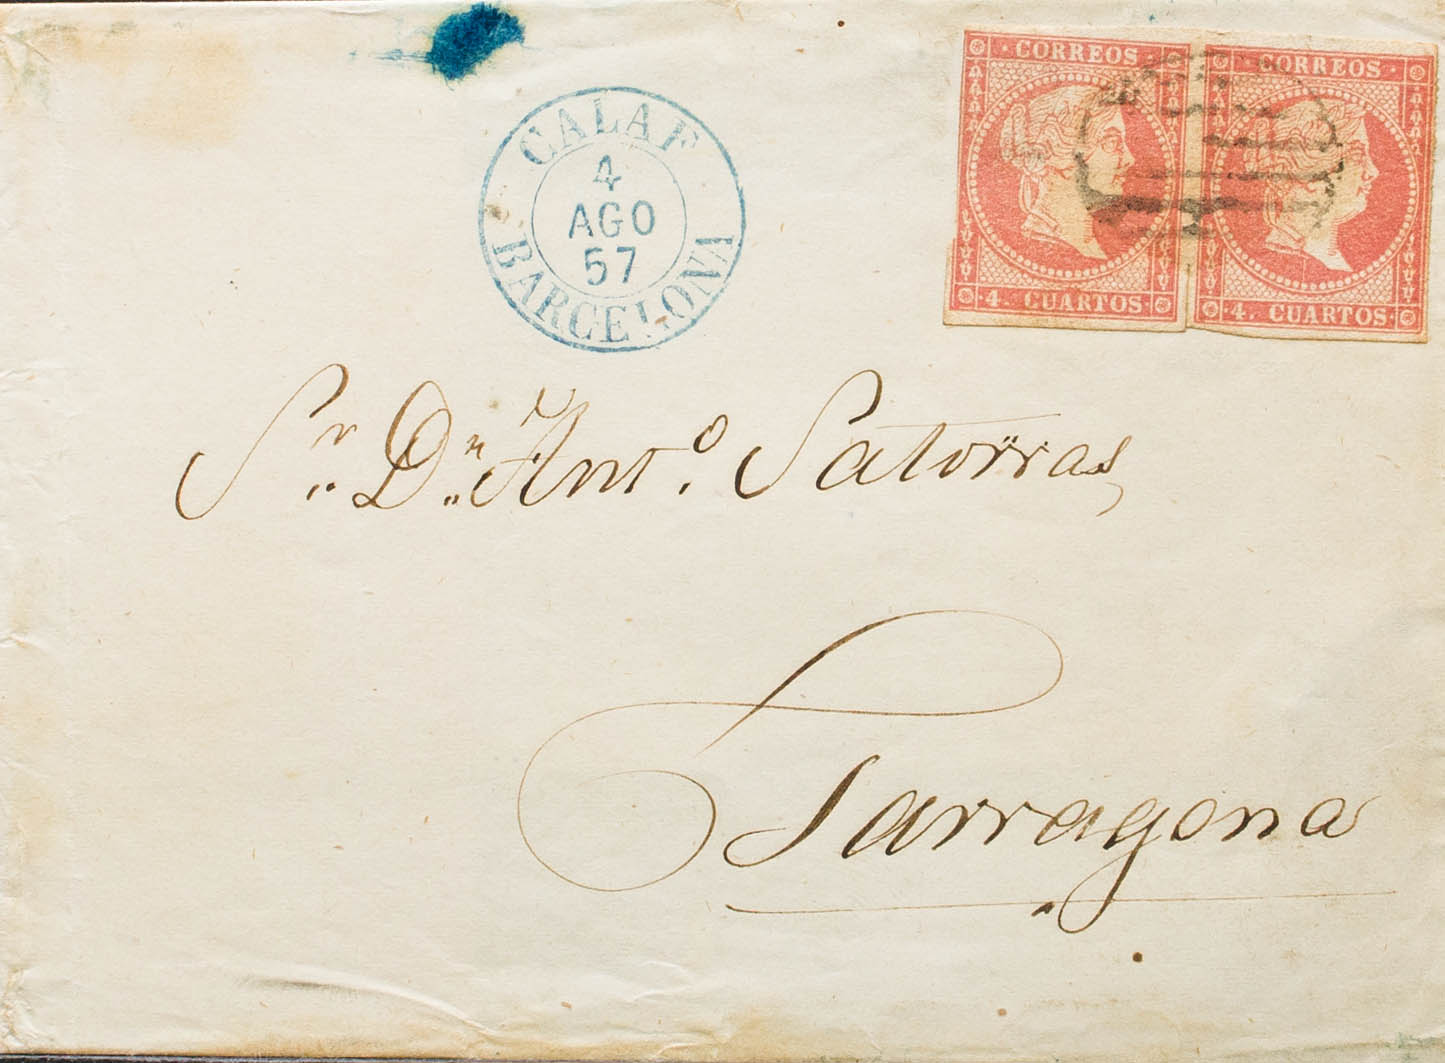 CALAF
4
AGO
57
BARCELONA
CORREOS
4. CUARTOS
CORREOS
4. CUARTOS
Sr. Dn. Anto. Satorras
Tarragona